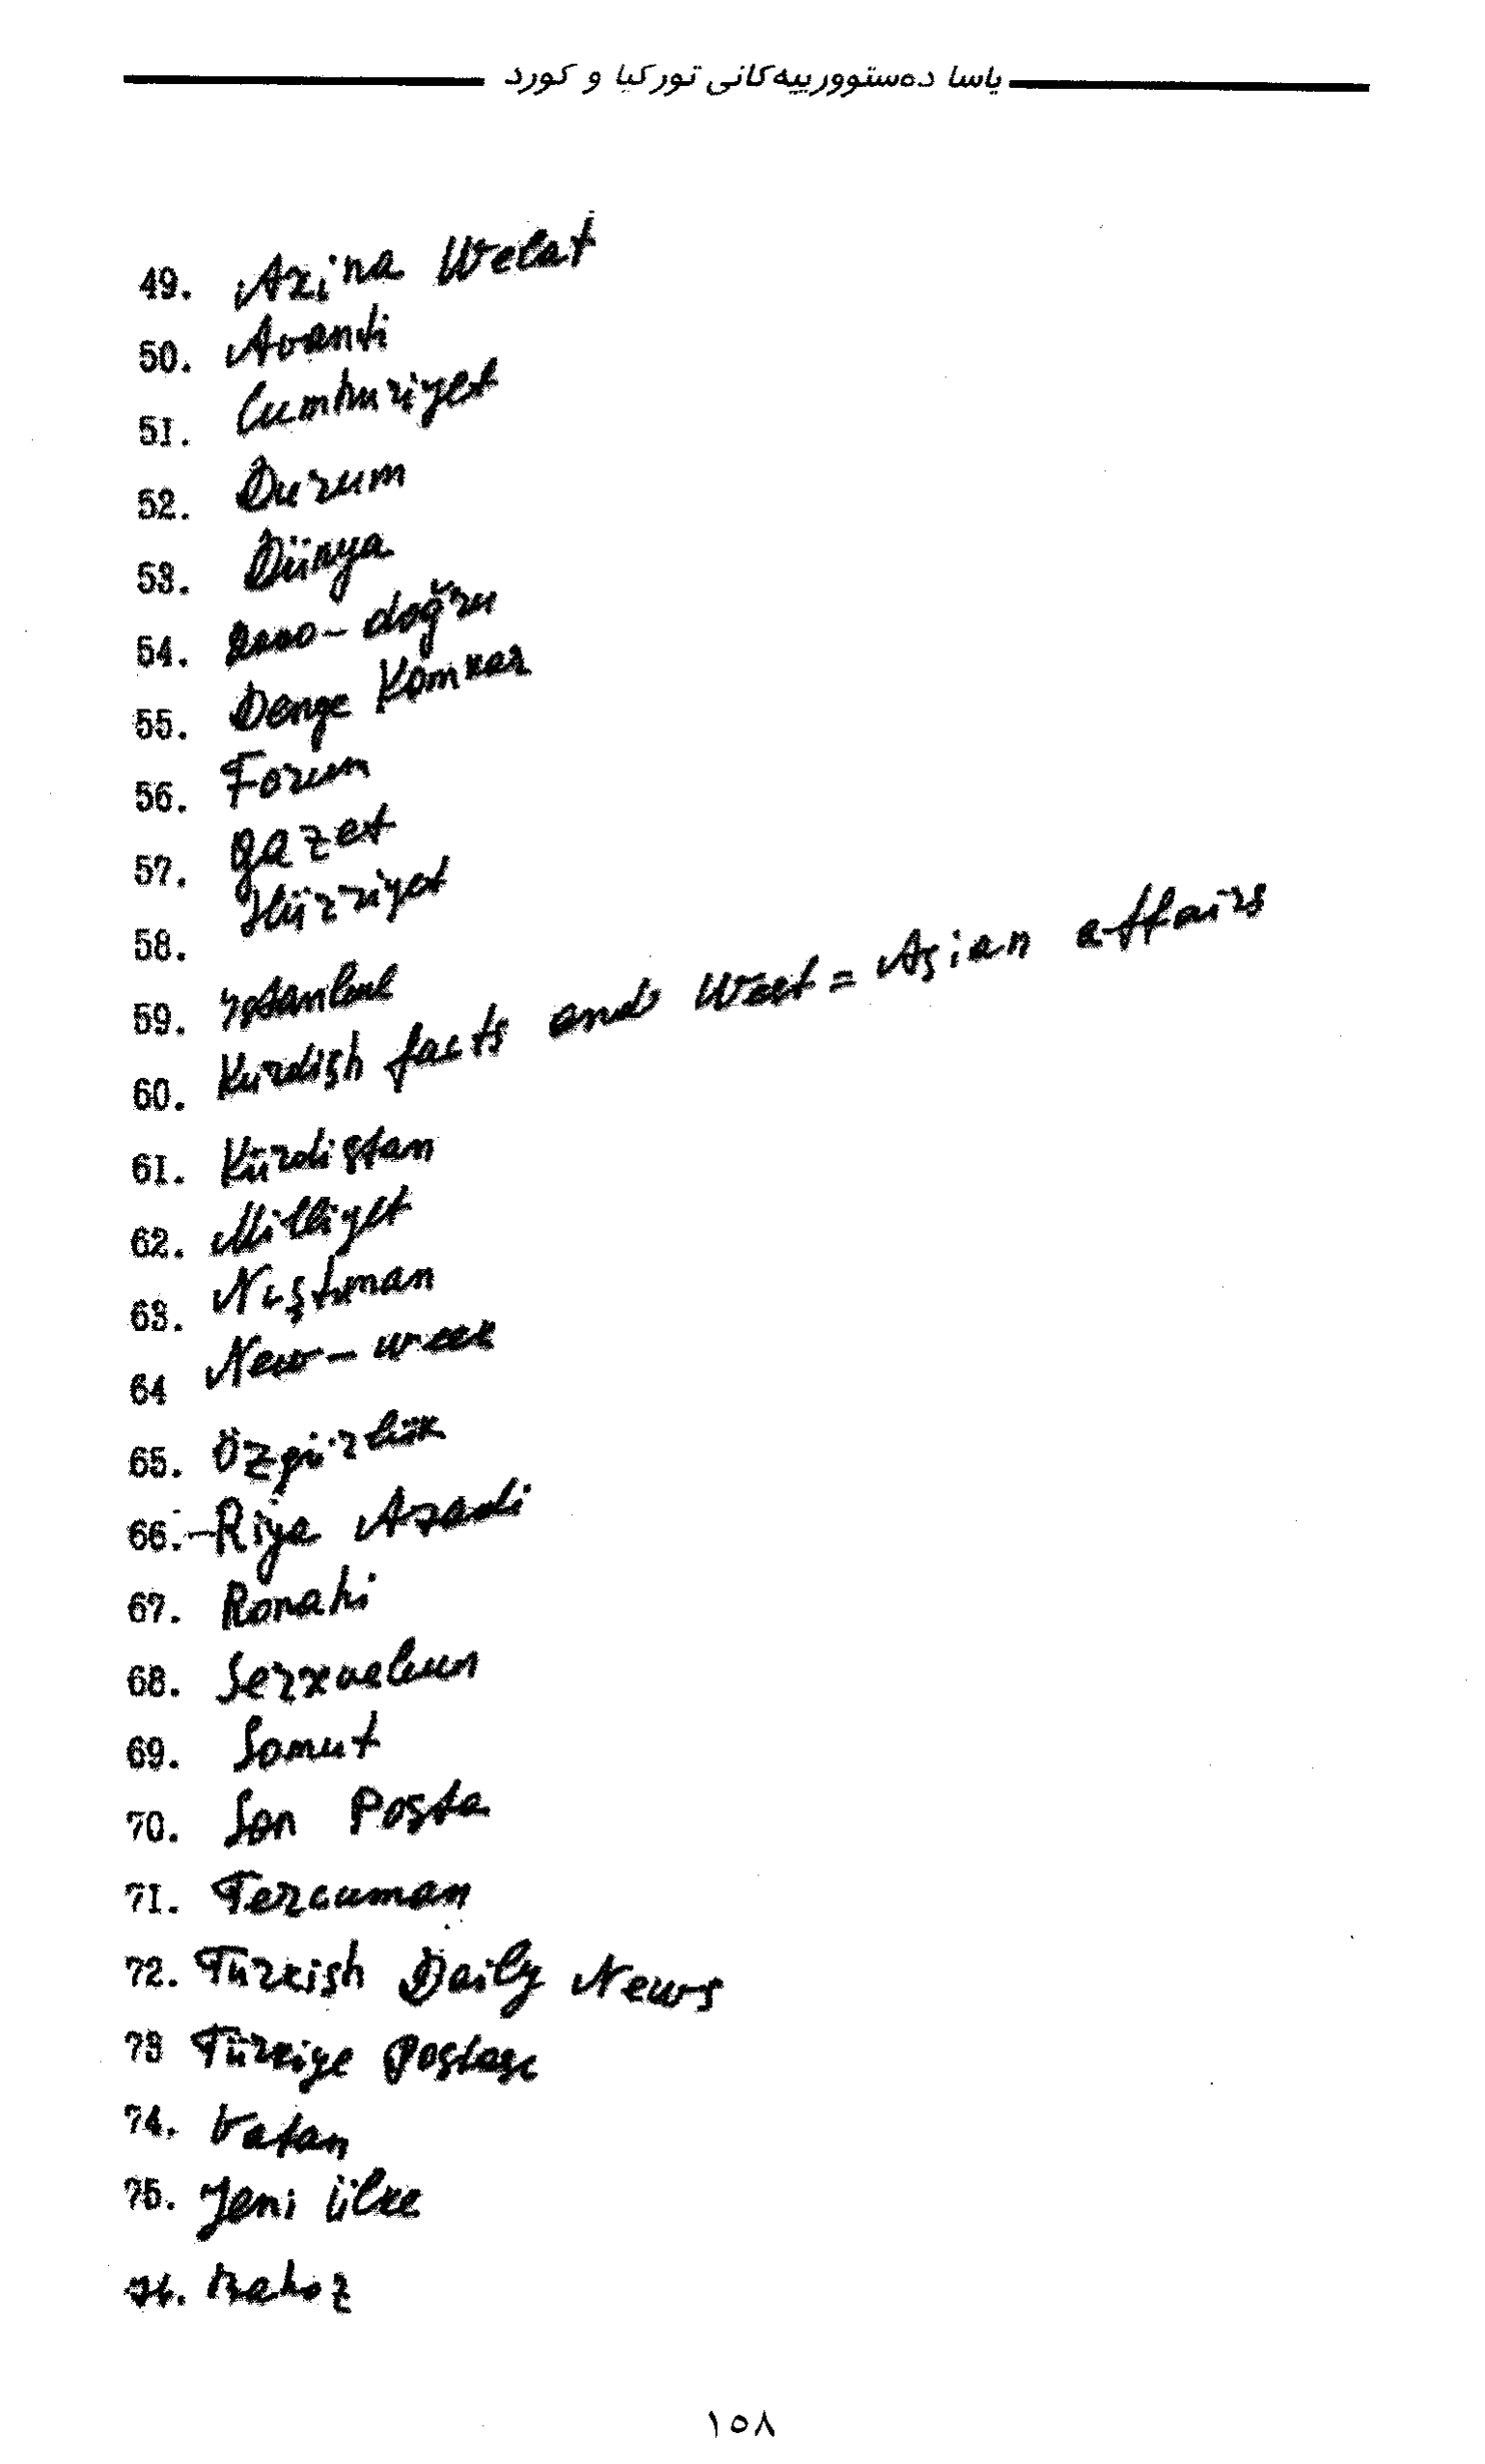 یاسا دەستوورییەکانی تورکیا و کورد
49. Azina Welat
50. Avanti
5I. Cumhuriyet
52. Durum
53. Dünya
54. 2000-doğru
55. Denge Komkar
56. Forum
57. gazet
58. Hürriyet
59. Istanbul
60. Kurdish facts and West = Asian affairs
6I. Kürdistan
62. Milliyet
63. Niştman
64 New-week
65. özgürlük
66.-Riya Azadi
67. Ronahi
68. Serxwebun
69. Somut
70. Son Posta
7I. Tercuman
72. Turkish Daily News
73 Türkiye Postası
74. Vatan
75. Yeni ülke
76. Bahoz
١٥٨